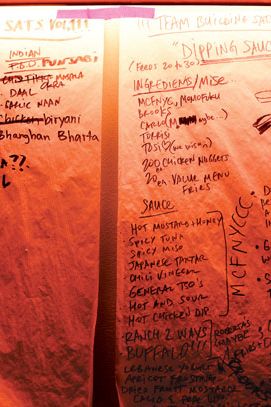 SATS VOL III
INDIAN
F.B.O PUNJABI
MASALA
OKRA
- DAAL
- GARLIC NAAN
- chicken biryani
Bharghan Bharta
A??
L
TEAM BUILDING SATS
"DIPPING SAUC
(FEEDS 20 to 30)
INGREDIENTS/MISE...
MCFNYC, MOMOFUKU
BROOKS
CARLO (M maybe...)
TORRISI
TOSI
200 CHICKEN NUGGETS
20 VALUE MENU
FRIES
SAUCE
HOT MUSTARD + HONEY
SPICY TUNA
SPICY MISO
JAPANESE TARTAR
CHILI VINEGAR
GENERAL TSO'S
HOT AND SOUR
HOT CHICKEN DIP
- RANCH 2 WAYS
BUFFALO!!!
MCFNYCCC
ROBERTAS
LEBANESE YOGURT
APRICOT FROSTING
DRIED FRUIT MOSTARDA